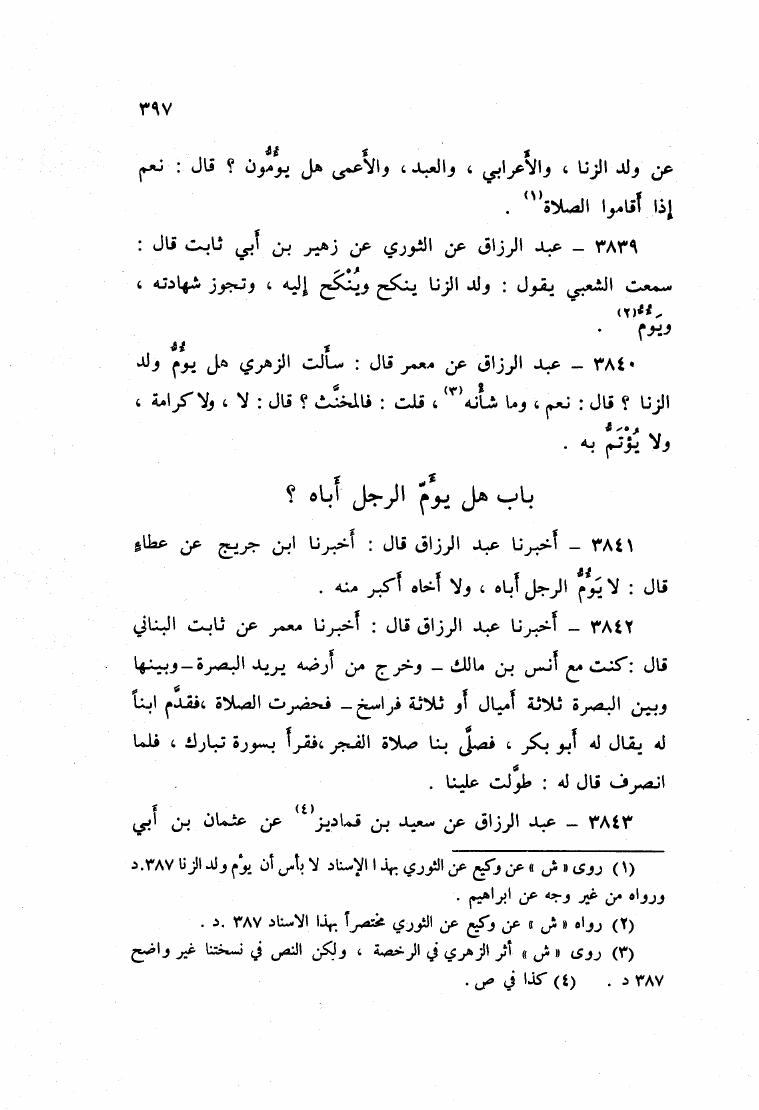 ٣٩٧
عن ولد الزنا ، والأعرابي ، والعبد، والأعمى هل يؤمُّون ؟ قال : نعم
إذا أقاموا الصلاة(١) .
٣٨٣٩ – عبد الرزاق عن الثوري عن زهير بن أبي ثابت قال :
سمعت الشعبي يقول : ولد الزنا ينكح ويُنْكَح إليه ، وتجوز شهادته ،
ويَؤمُّ(٢) .
٣٨٤٠ – عبد الرزاق عن معمر قال : سألت الزهري هل يؤمُّ ولد
الزنا ؟ قال : نعم ، وما شأنه(٣) ، قلت : فالمخنَّث ؟ قال : لا ، ولا كرامة ،
ولا يُؤْتَمُّ به .
باب هل يؤمّ الرجل أباه ؟
٣٨٤١ – أخبرنا عبد الرزاق قال : أخبرنا ابن جريج عن عطاءٍ
قال : لا يَؤُمُّ الرجل أباه ، ولا أخاه أكبر منه .
٣٨٤٢ – أخبرنا عبد الرزاق قال : أخبرنا معمر عن ثابت البناني
قال : كنت مع أنس بن مالك – وخرج من أرضه يريد البصرة – وبينها
وبين البصرة ثلاثة أميال أو ثلاثة فراسخ – فحضرت الصلاة ،فقدَّم ابناً
له يقال له أبو بكر ، فصلَّى بنا صلاة الفجر ،فقرأ بسورة تبارك ، فلما
انصرف قال له : طوَّلت علينا .
٣٨٤٣ – عبد الرزاق عن سعيد بن قماديز(٤) عن عثمان بن أبي
(١) روى « ش » عن وكيع عن الثوري بهذا الإسناد لا بأس أن يؤم ولد الزنا ٣٨٧.د
ورواه من غير وجه عن ابراهيم .
(٢) رواه « ش » عن وكيع عن الثوري مختصراً بهذا الاسناد ٣٨٧ .د .
(٣) روى « ش » أثر الزهري في الرخصة ، ولكن النص في نسختنا غير واضح
٣٨٧ د . (٤) كذا في ص .